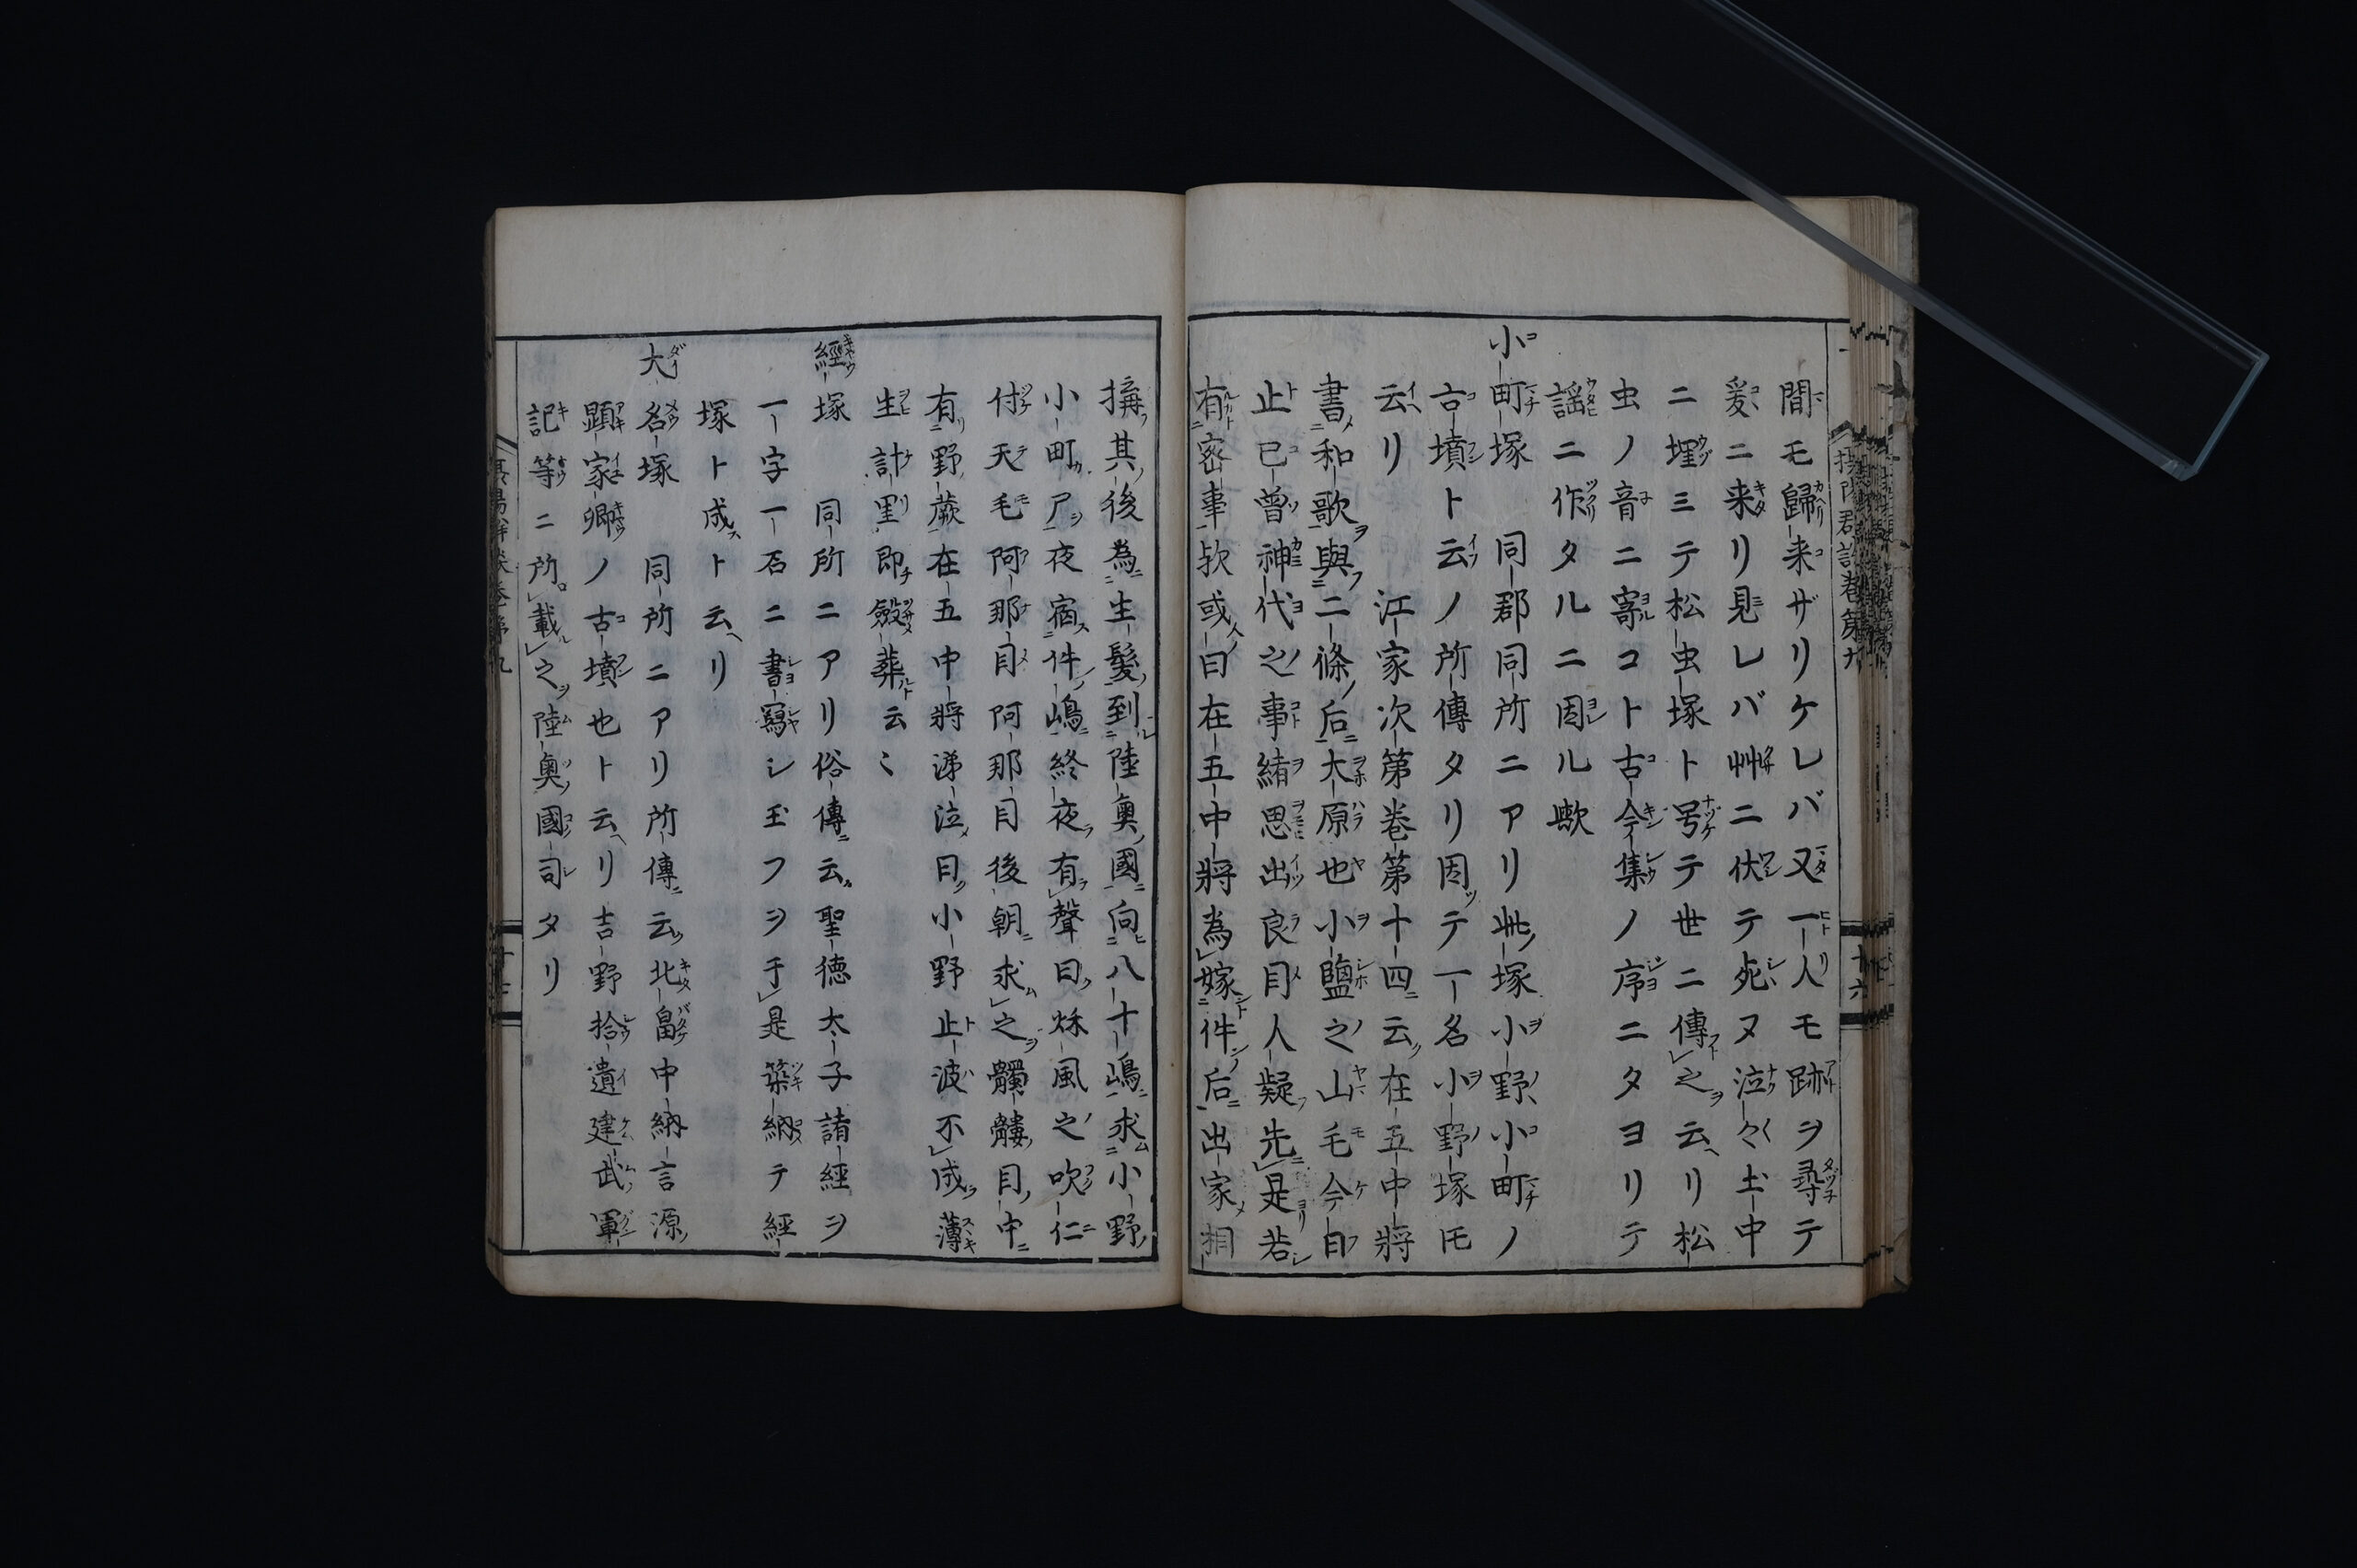 間モ歸来ザリケレバ又一人モ跡ヲ尋テ
爰ニ来リ見レバ艸ニ伏テ死ヌ泣々土中
ニ埋ミテ松虫塚ト号テ世ニ傳之云リ松
虫ノ音ニ寄コト古今集ノ序ニタヨリテ
謡ニ作タルニ因ル歟
小町塚 同郡同所ニアリ此塚小野小町ノ
古墳ト云ノ所傳タリ因テ一名小野塚モ
云リ 江家次第巻第十四云在五中將
書和歌與二條后大原也小鹽之山毛今日
止已曽神代之事緒思出良目人疑先是若
有密事欤或曰在五中將為嫁件后出家相
搆其後為生髪到陸奥國向八十嶋求小野
小町尸夜宿件嶋終夜有聲曰秋風之吹仁
付天毛阿那目阿那目後朝求之髑髏目中
有野蕨在五中將涕泣曰小野止波不成薄
生計里即斂葬云〻
經塚 同所ニアリ俗傳云聖徳太子諸經ヲ
一字一石ニ書寫シ玉フヲ于是築納テ經
塚ト成ト云リ
大名塚 同所ニアリ所傳云北畠中納言源
顕家卿ノ古墳也ト云リ吉野拾遺建武軍
記等ニ所載之陸奥國司タリ